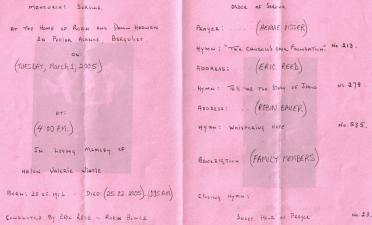 MEMORIAL SERVICE
AT THE HOME OF ROBIN AND DAWN
AVENUE, BERGVLIET
ON
(TUESDAY, March 1, 2005)
AT:
(4:00 P.M.)
IN LOVING MEMORY OF
HELEN VALERIE
BORN: DIED: (25.02.2005)
CONDUCTED BY ERIC REED - ROBIN
ORDER OF SERVICE
PRAYER: ... (HENNIE VISSER)
HYMN: "THE CHURCH'S ONE FOUNDATION" No. 213.
ADDRESS: (ERIC REED)
HYMN: TELL ME THE STORY OF JESUS No. 279
ADDRESS: (ROBIN)
HYMN: WHISPERING HOPE No. 535.
BENEDICTION (FAMILY MEMBERS)
CLOSING HYMN:
SWEET HOUR OF PRAYER No. 23.